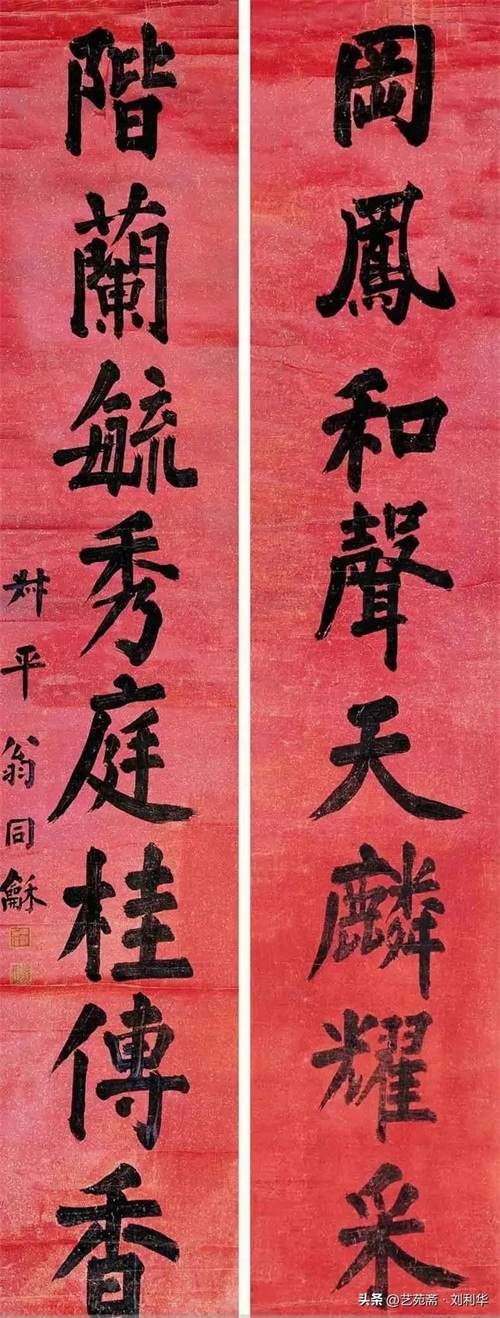 岡鳳和聲天麟耀采
階蘭毓秀庭桂傳香
叔平翁同龢
头条 @艺苑斋·刘利华